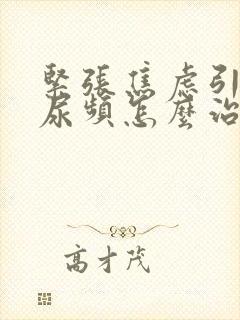 緊張焦虑引
尿頻怎麼治
高才茂